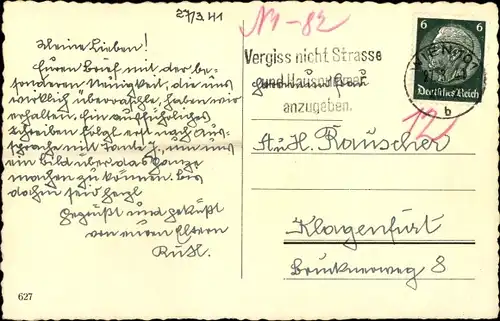 27/3.41
Meine Lieben!
Euren Brief mit der be-
sonderen Neuigkeit, die uns
wirklich überraschte, haben wir
erhalten. Ein ausführliches
Schreiben folgt erst nach Aus-
sprache mit Tante J., um uns
ein Bild über das Ganze
machen zu können. Bis
dahin seid herzl.
gegrüßt und geküßt
von euren Eltern
Rudl.
627
N1-82
Vergiss nicht Strasse
und Hausnummer
anzugeben.
6 6
WIEN
Deutsches Reich
b
12
Rauscher
Klagenfurt
Brucknerweg 8